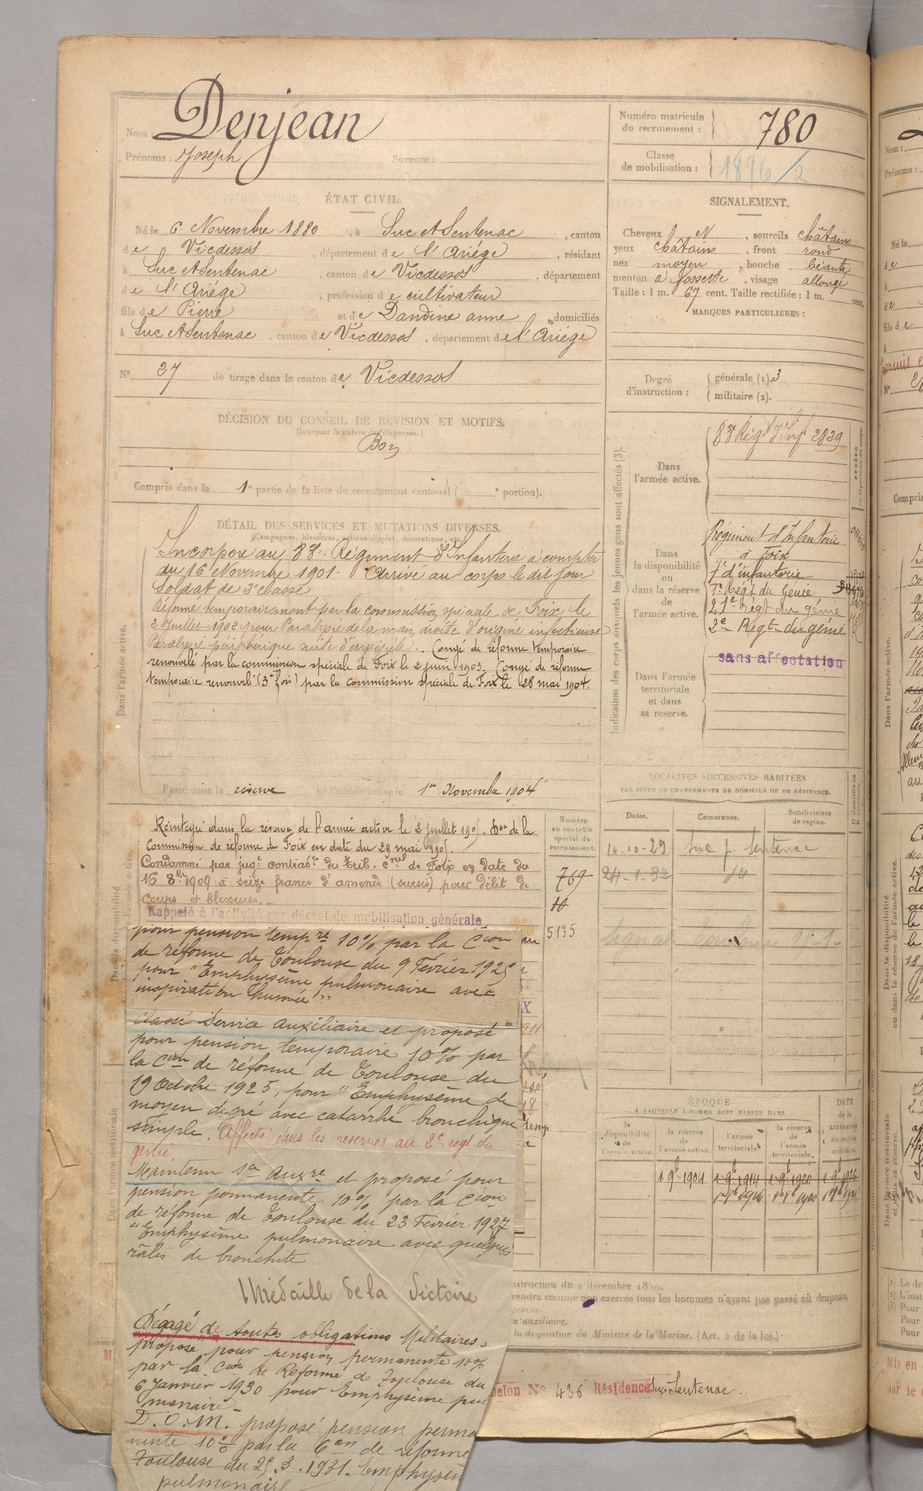 Nom : Denjean
Prénoms : Joseph Surnom :
Numéro matricule du recrutement : 780
Classe de mobilisation : 1896/2
ÉTAT CIVIL.
Né le 6 Novembre 1880, à Suc et Sentenac, canton
de Vicdessos, département de l'Ariège, résidant
à Suc et Sentenac, canton de Vicdessos, département
de l'Ariège, profession de cultivateur
fils de Pierre et de Dandine anne, domiciliés
à Suc et Sentenac, canton de Vicdessos, département de l'Ariège
N° 37 de tirage dans le canton de Vicdessos
DÉCISION DU CONSEIL DE REVISION ET MOTIFS.
(Indiquer la nature des dispenses.)
Bon
Compris dans la 1e partie de la liste du recrutement cantonal ( portion).
SIGNALEMENT.
Cheveux et N, sourcils châtains
yeux châtains, front rond
nez moyen, bouche béante
menton à fossette, visage allongé
Taille : 1 m. 67 cent. Taille rectifiée : 1 m. cent.
MARQUES PARTICULIÈRES :
Degré d'instruction : générale (1) 3
militaire (2).
DÉTAIL DES SERVICES ET MUTATIONS DIVERSES.
Incorporé au 83e Régiment d'Infanterie à compter
du 16 Novembre 1901. Arrivé au corps le dit jour
soldat de 2e classe
Réformé temporairement par la commission spéciale de Foix le
2 Juillet 1902 pour Paralysie de la main droite d'origine infectieuse
Paralysie périphérique suite d'érysipèle. Congé de réforme temporaire
renouvelé par la commission spéciale de Foix le 2 juin 1903. Congé de réforme
temporaire renouvelé (3e fois) par la commission spéciale de Foix le 28 mai 1904.
Passé dans la réserve de l'armée active le 1er Novembre 1904
Indication des corps auxquels les jeunes gens sont affectés (3).
Dans l'armée active.
83 Régt d'Inf 2839
Dans la disponibilité ou dans la réserve de l'armée active.
Régiment d'Infanterie
à Foix
d'infanterie
Régt du Génie
21e Régt du génie
2e Régt du génie
sans affectation
Dans l'armée territoriale et dans sa réserve.
Réintégré dans la réserve de l'armée active le 2 juillet 1905. Don de la
Commission de réforme de Foix en date du 29 mai 1905.
Condamné par jugt contradre du Trib. Crel de Foix en date du
16 8bre 1909 à seize francs d'amende (sursis) pour délit de
coups et blessures.
Rappelé à l'activité par décret de mobilisation générale
pour pension tempre 10% par la Cion
de réforme de Toulouse du 9 Février 1925
pour "Emphysème pulmonaire avec
inspiration humée"
Classé Service auxiliaire et proposé
pour pension temporaire 10% par
la Cion de réforme de Toulouse du
19 Octobre 1925, pour "Emphysème de
moyen degré avec catarrhe bronchique
simple. Affecté dans les réserves au 2e régt du
génie
Maintenu Sce Auxre et proposé pour
pension permanente 10% par la Cion
de réforme de Toulouse du 23 Février 1927
"Emphysème pulmonaire avec quelques
râles de bronchite
Médaille de la Victoire
Dégagé de toute obligations Militaires.
proposé pour pension permanente 10%
par la Cion de Réforme de Toulouse du
6 Janvier 1930 pour Emphysème pul
monaire-
D.O.M. proposé pension perma
nente 10% par la Con de réforme
Toulouse du 25.3.1931. Emphysèm
pulmonaire
Numéro au contrôle spécial du recrutement.
769
5135
LOCALITÉS SUCCESSIVES HABITÉES
PAR SUITE DE CHANGEMENTS DE DOMICILE OU DE RÉSIDENCE.
Dates. Communes. Subdivisions de région.
14.10-29 Suc p. Sentenac
24-1-32
ÉPOQUE
À LAQUELLE L'HOMME DOIT PASSER DANS
la disponibilité de l'armée active. la réserve de l'armée active. l'armée territoriale. la réserve de l'armée territoriale.
struction du 4 décembre 1889.
rendre comme non exercés tous les hommes n'ayant pas passé au drapeau.
auxiliaire.
la disposition du Ministre de la Marine. (Art. 4 de la loi.)
elon N° 436 Résidence Suc-Sentenac.